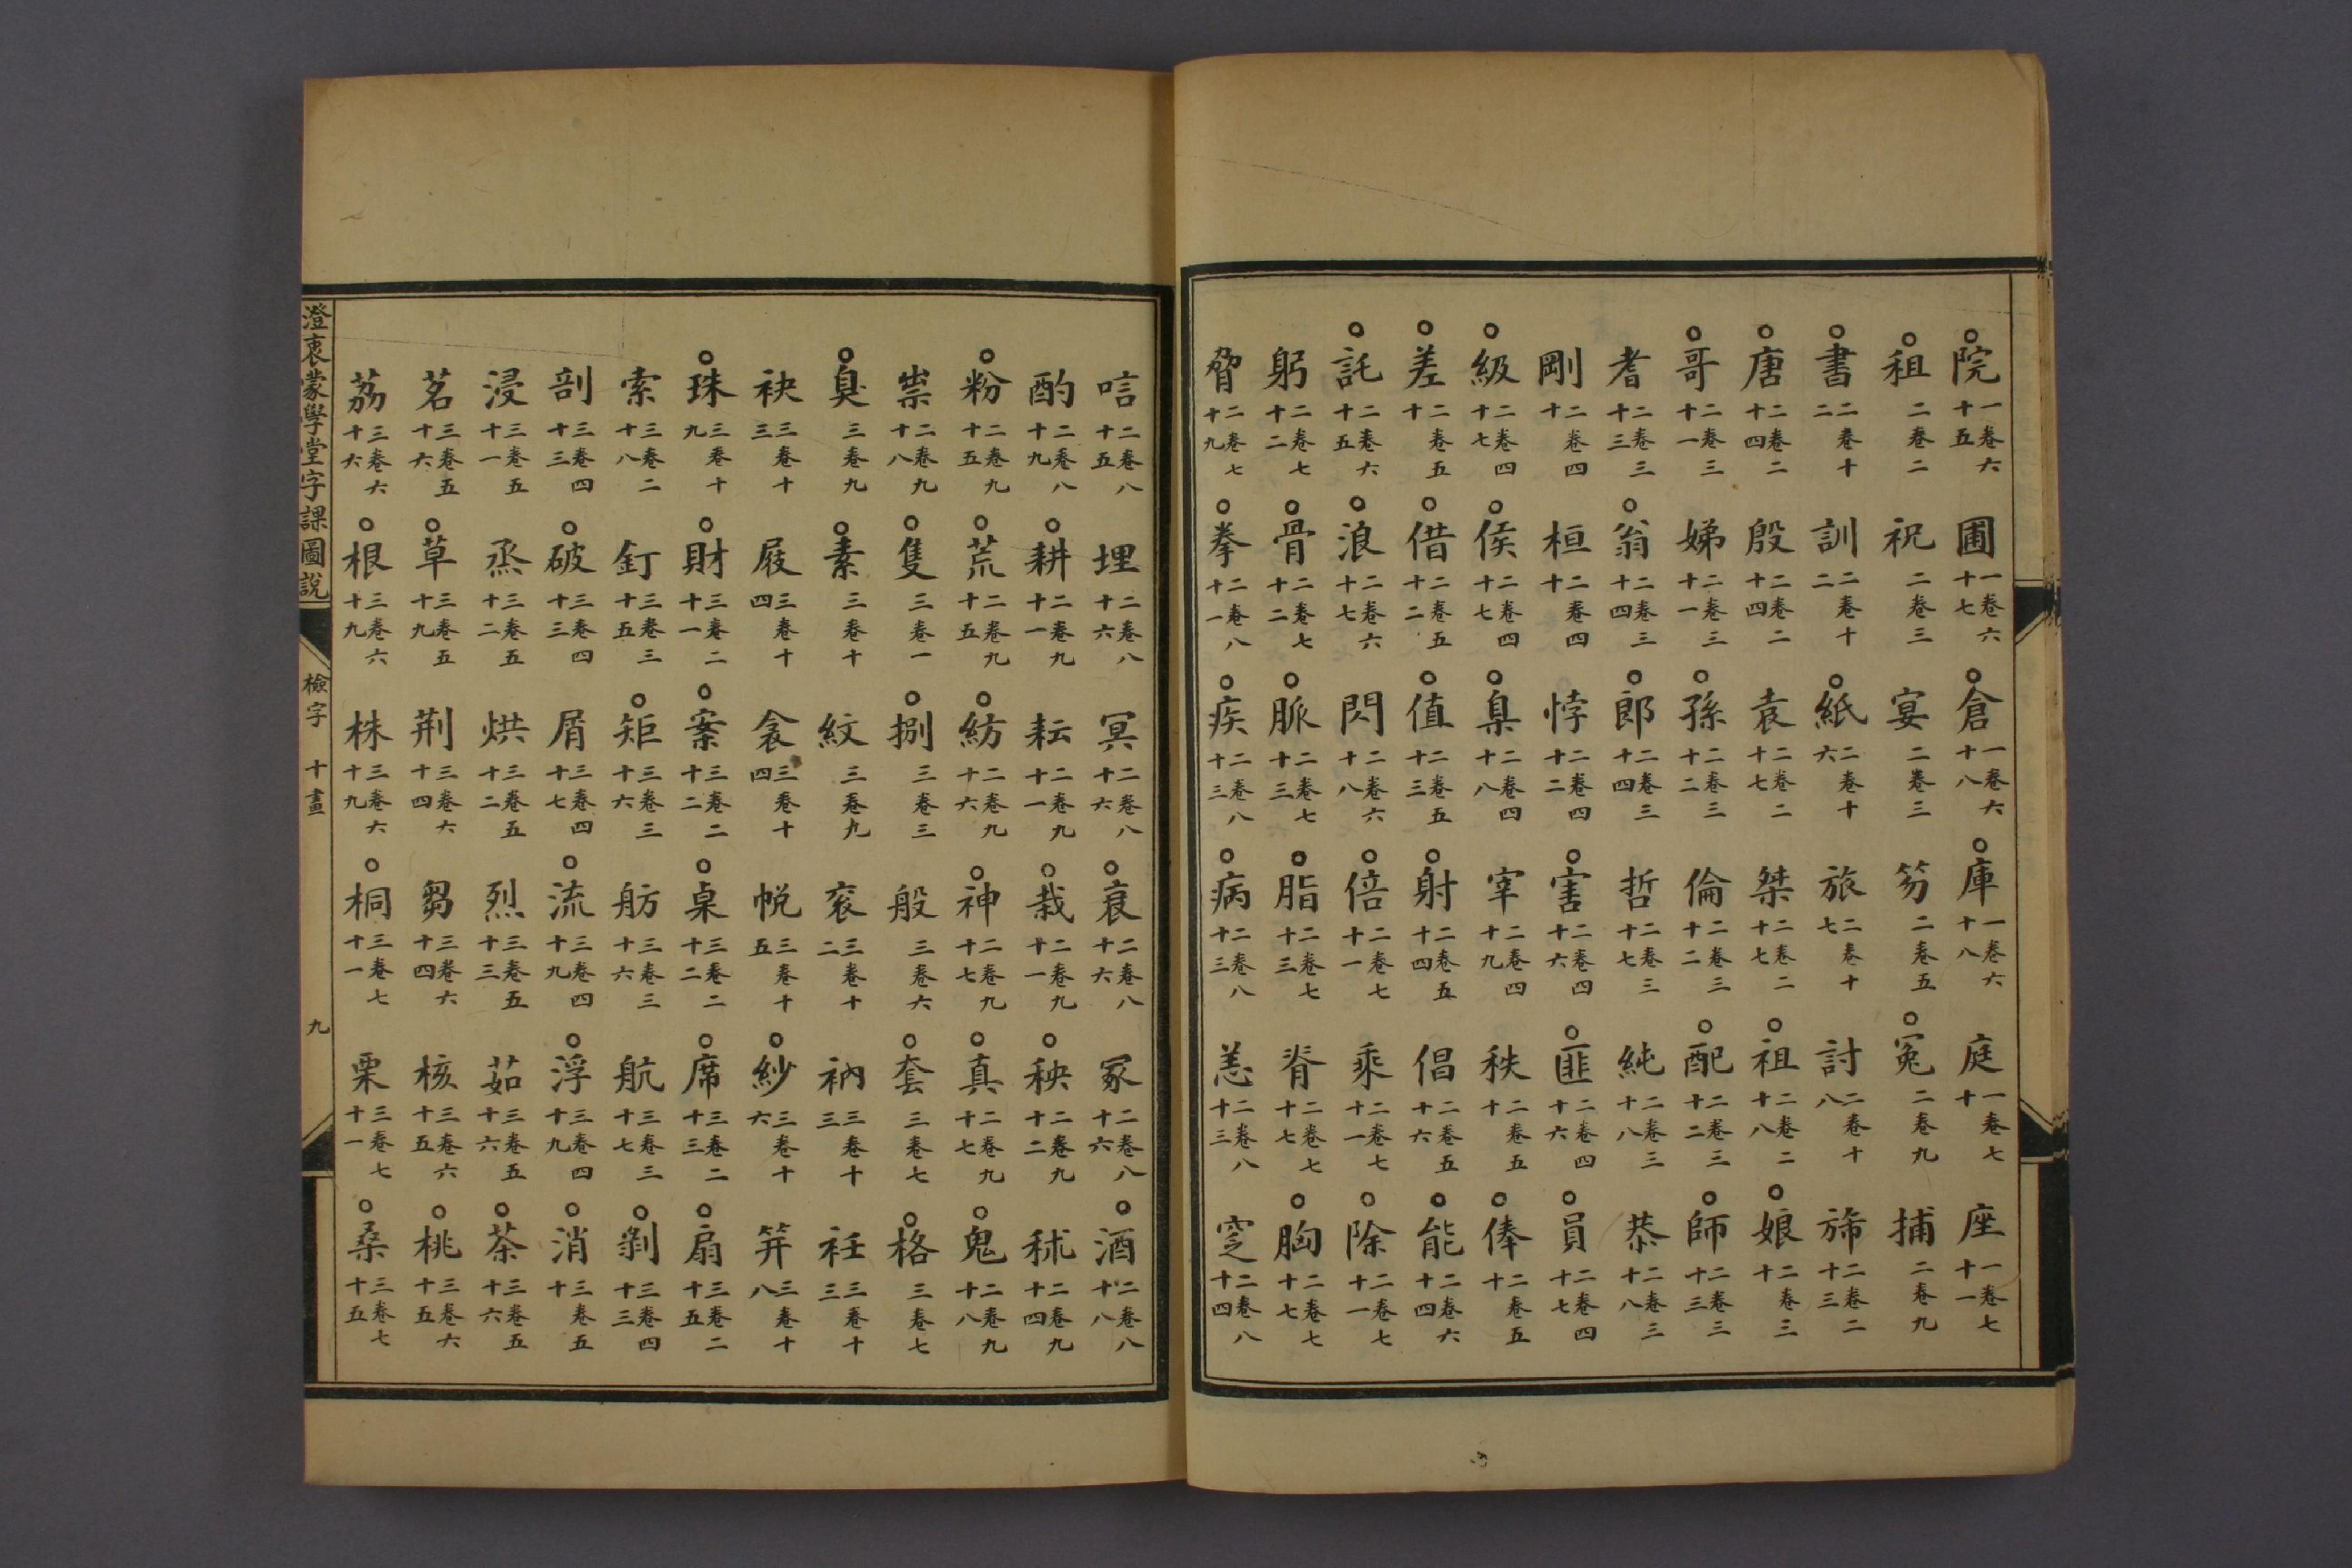 ○院一卷六十五 圃一卷六十七 ○倉一卷六十八 ○庫一卷六十八 庭一卷七十 座一卷七十一
○祖二卷二 祝二卷三 宴二卷三 笏二卷五 ○冤二卷九 捕二卷九
○書二卷十二 訓二卷十二 ○紙二卷十六 旅二卷十七 討二卷十八 旆二卷二十三
○唐二卷二十四 殷二卷二十四 袁二卷二十七 桀二卷二十七 ○祖二卷二十八 ○娘二卷三十
○哥二卷三十一 娣二卷三十一 ○孫二卷三十二 倫二卷三十二 ○配二卷三十二 ○師二卷三十三
耆二卷三十三 ○翁二卷三十四 ○郎二卷三十四 哲二卷三十七 純二卷三十八 恭二卷三十八
剛二卷四十 桓二卷四十 悖二卷四十二 ○害二卷四十六 ○匪二卷四十六 ○員二卷四十七
○級二卷四十七 ○侯二卷四十七 ○臬二卷四十八 宰二卷四十九 秩二卷五十 ○俸二卷五十
○差二卷五十 ○借二卷五十二 ○值二卷五十三 ○射二卷五十四 倡二卷五十六 ○能二卷六十四
○託二卷六十五 ○浪二卷六十七 閃二卷六十八 ○倍二卷七十一 乘二卷七十一 ○除二卷七十一
躬二卷七十二 ○骨二卷七十二 ○脈二卷七十三 ○脂二卷七十三 脊二卷七十七 ○胸二卷七十七
脅二卷七十九 ○拳二卷八十一 ○疾二卷八十三 ○病二卷八十三 恙二卷八十三 窆二卷八十四
唁二卷八十五 埋二卷八十六 冥二卷八十六 ○衰二卷八十六 冢二卷八十六 ○酒二卷八十八
酌二卷八十九 ○耕二卷九十一 耘二卷九十一 ○栽二卷九十一 ○秧二卷九十二 秫二卷九十四
○粉二卷九十五 ○荒二卷九十五 ○紡二卷九十六 ○神二卷九十七 ○真二卷九十七 ○鬼二卷九十八
祟二卷九十八 ○隻三卷一 ○捌三卷三 般三卷六 ○套三卷七 ○格三卷七
○臭三卷九 ○素三卷十 紋三卷九 衮三卷十二 衲三卷十三 衽三卷十三
袂三卷十三 屐三卷十四 衾三卷十四 帨三卷十五 ○紗三卷十六 笄三卷十八
○珠三卷十九 ○財三卷二十一 ○案三卷二十二 ○桌三卷二十二 ○席三卷二十三 ○扇三卷二十五
索三卷二十八 釘三卷三十五 ○矩三卷三十六 舫三卷三十六 航三卷三十七 ○剝三卷四十三
剖三卷四十三 ○破三卷四十三 屑三卷四十七 ○流三卷四十九 ○浮三卷四十九 ○消三卷五十
浸三卷五十一 烝三卷五十二 烘三卷五十二 烈三卷五十三 茹三卷五十六 ○茶三卷五十六
茗三卷五十六 ○草三卷五十九 荆三卷六十四 芻三卷六十四 核三卷六十五 ○桃三卷六十五
荔三卷六十六 ○根三卷六十九 株三卷六十九 ○桐三卷七十一 栗三卷七十一 ○桑三卷七十五
澄衷蒙學堂字課圖說 檢字 十畫 九